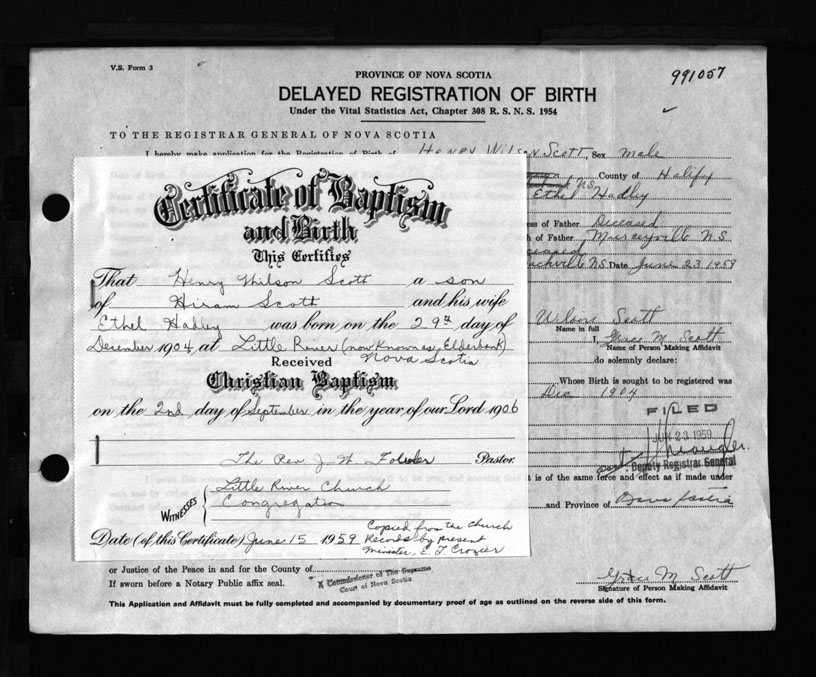 V.S. Form 3
991057
PROVINCE OF NOVA SCOTIA
DELAYED REGISTRATION OF BIRTH
Under the Vital Statistics Act, Chapter 308 R. S. N. S. 1954
TO THE REGISTRAR GENERAL OF NOVA SCOTIA
I hereby make application for the Registration of Birth of Henry Wilson Scott, Sex Male
County of Halifx
Ethel Hadley
ess of Father Deceased
h of Father N.S.
N.S. Date June 23 1959
Wilson Scott
Name in full
I, Grace M. Scott
Name of Person Making Affidavit
do solemnly declare:
Whose Birth is sought to be registered was
Dec 1904
FILED
JUN 23 1959
Deputy Registrar General
t is of the same force and effect as if made under
and Province of Nova Scotia
Certificate of Baptism
and Birth
This Certifies
That Henry Wilson Scott a son
of Hiram Scott and his wife
Ethel Hadley was born on the 29th day of
December 1904 at Little River (now known as, Elderbank)
Nova Scotia
Received
Christian Baptism
on the 2nd day of September in the year of our Lord 1906
The Rev J. W. Pastor.
WITNESSES
Little River Church
Congregation
Date (of this Certificate) June 15 1959
Copied from the church
Records by present
minister, E. J. Crozier
or Justice of the Peace in and for the County of
If sworn before a Notary Public affix seal.
A Commissioner of The Supreme
Court of Nova Scotia
Grace M. Scott
Signature of Person Making Affidavit
This Application and Affidavit must be fully completed and accompanied by documentary proof of age as outlined on the reverse side of this form.